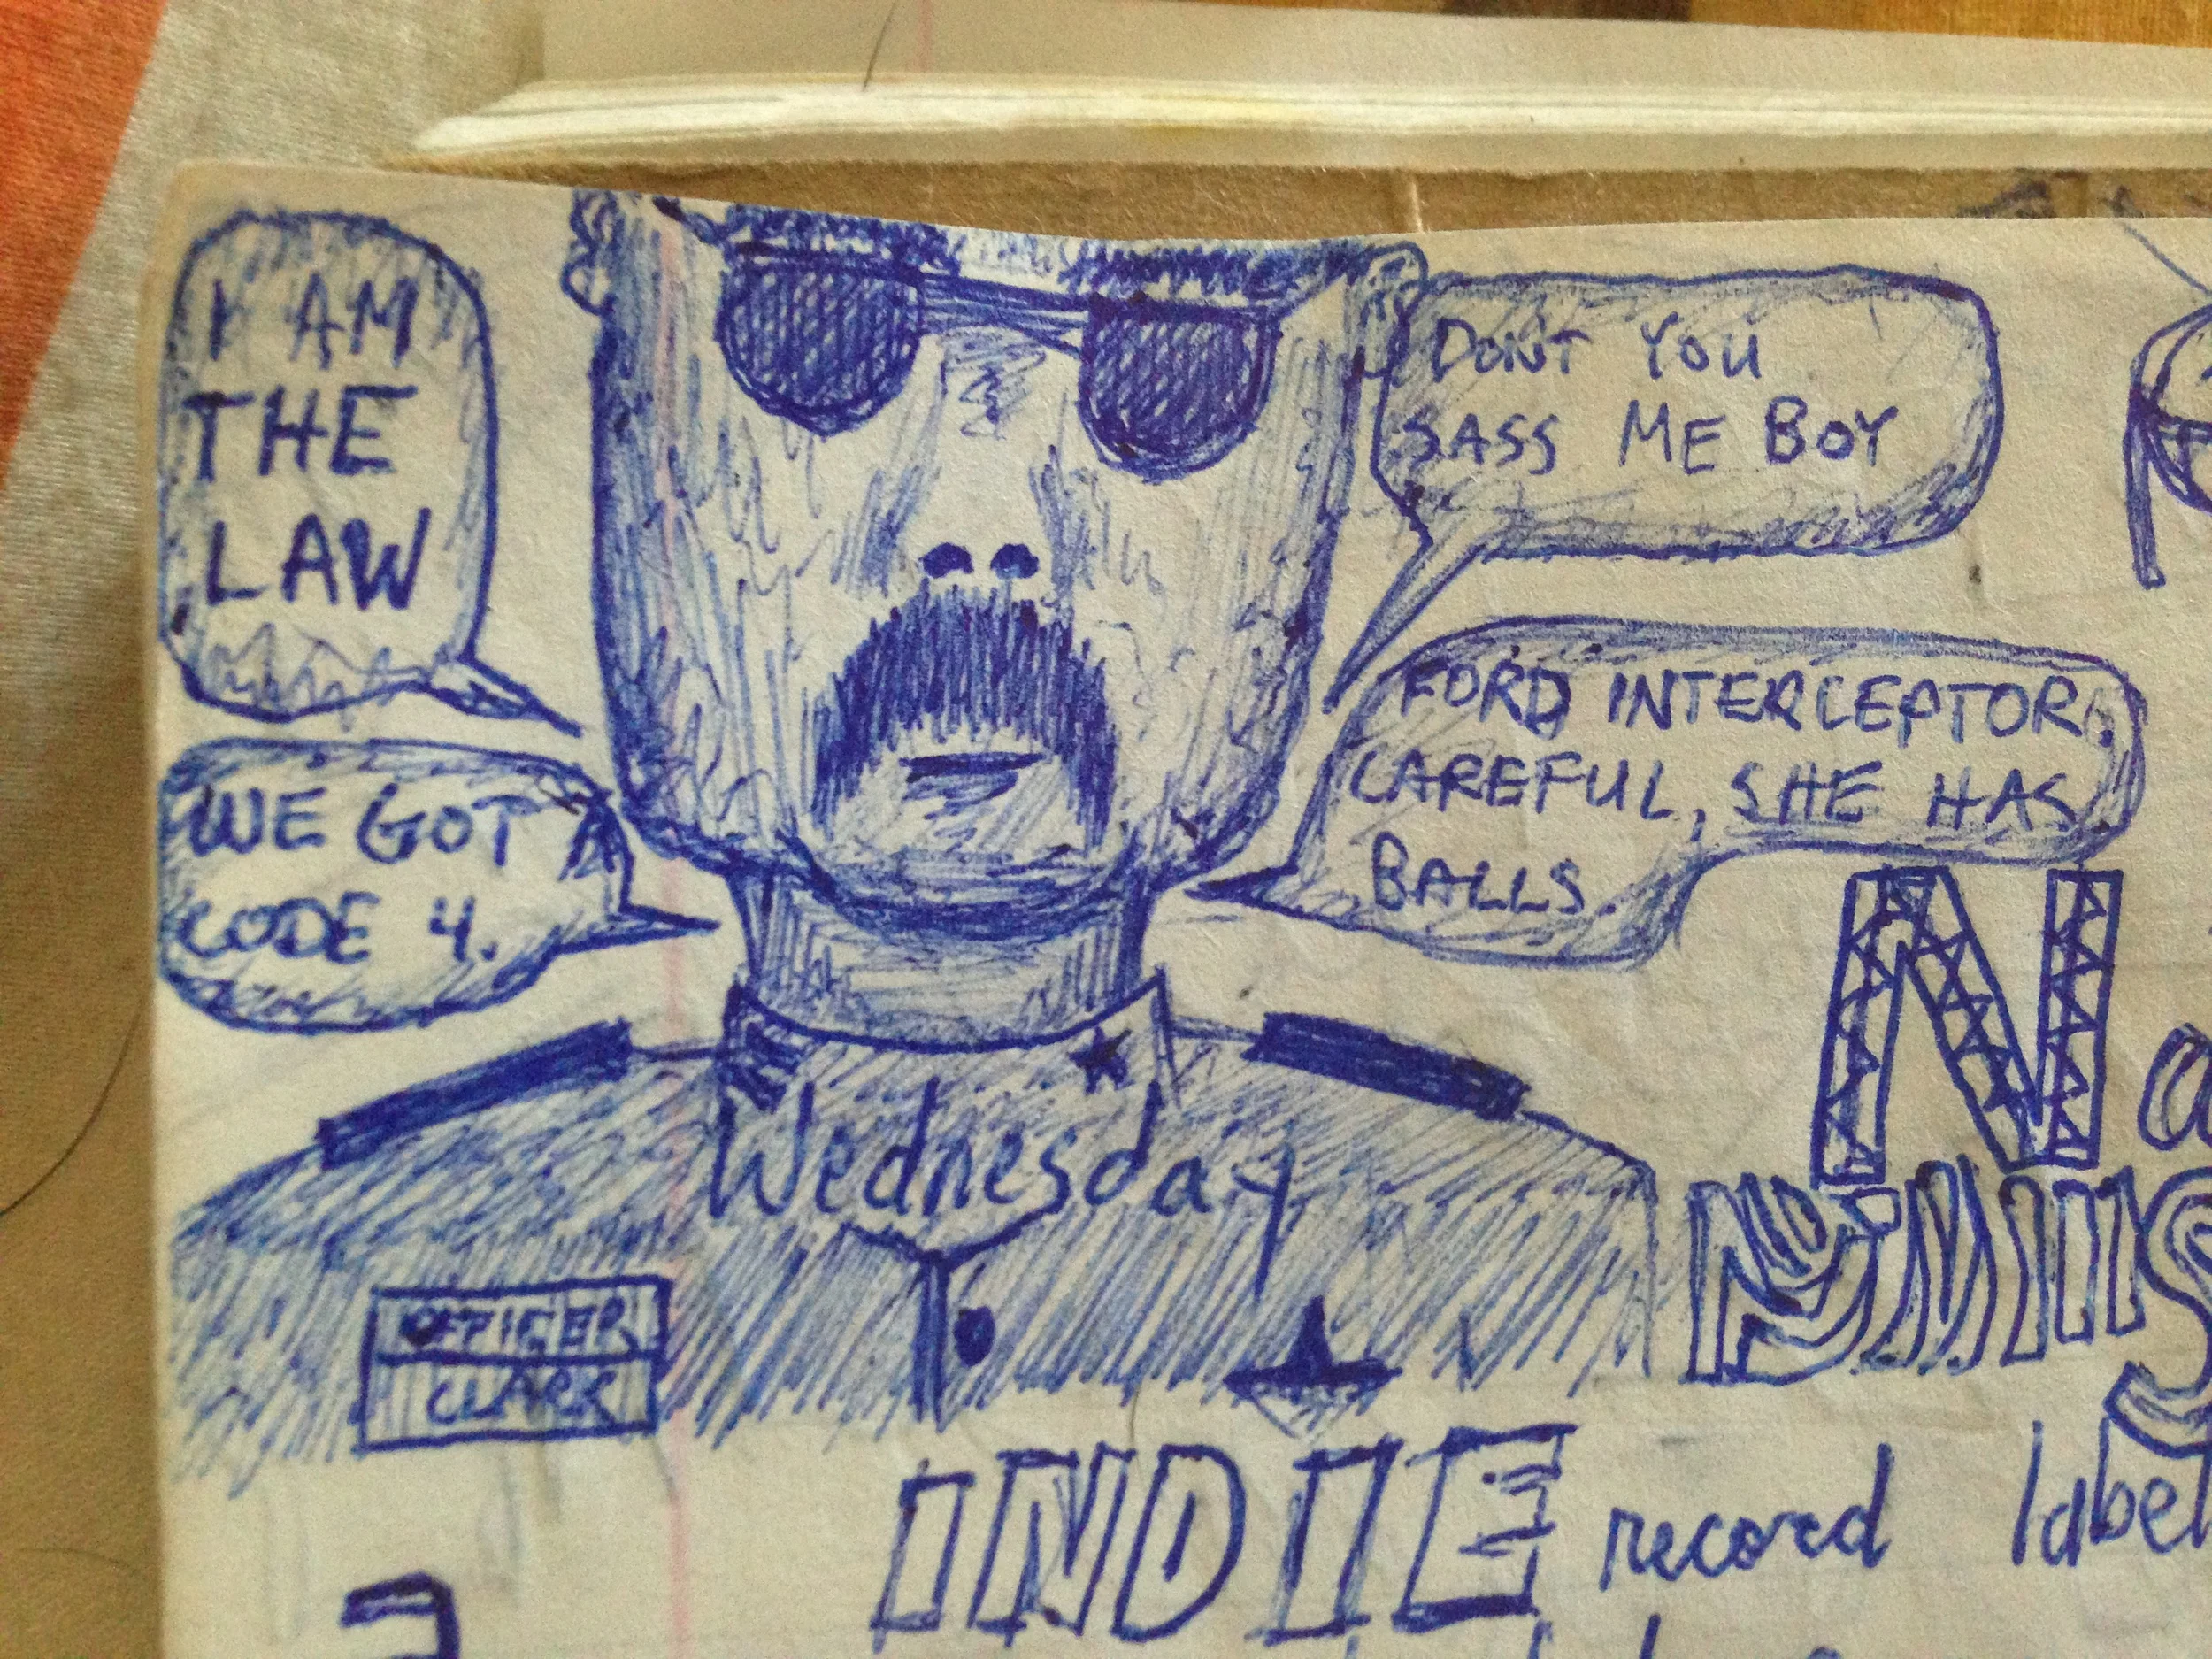 I AM
THE
LAW
WE GOT A
CODE 4.
DONT YOU
SASS ME BOY
FORD INTERCEPTOR,
CAREFUL, SHE HAS
BALLS.
Wednesday
OFFICER
CLARK
INDIE record label